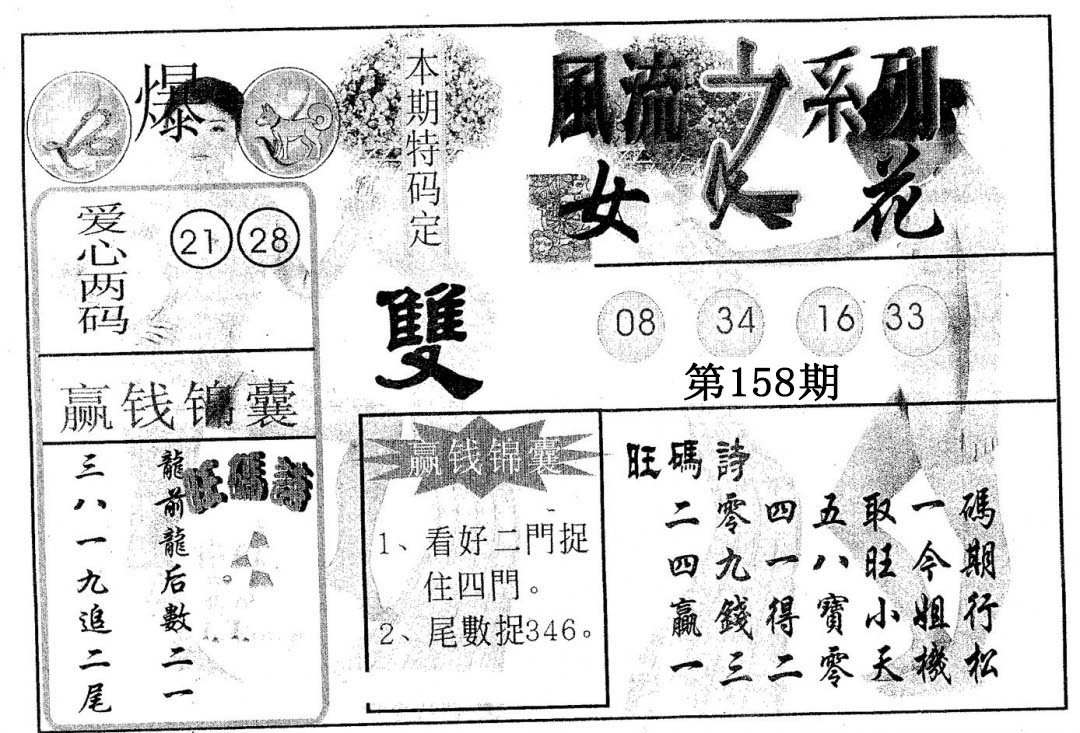 爆
爱心两码
21 28
赢钱锦囊
旺碼詩
龍前龍后數二一
三八一九追二尾
本期特码定
雙
風流之系列
女人花
08 34 16 33
第158期
赢钱锦囊
1、看好二門捉
住四門。
2、尾數捉346。
旺碼詩
二零四五取一碼
四九一八旺今期
贏錢得寶小姐行
一三二零天機松